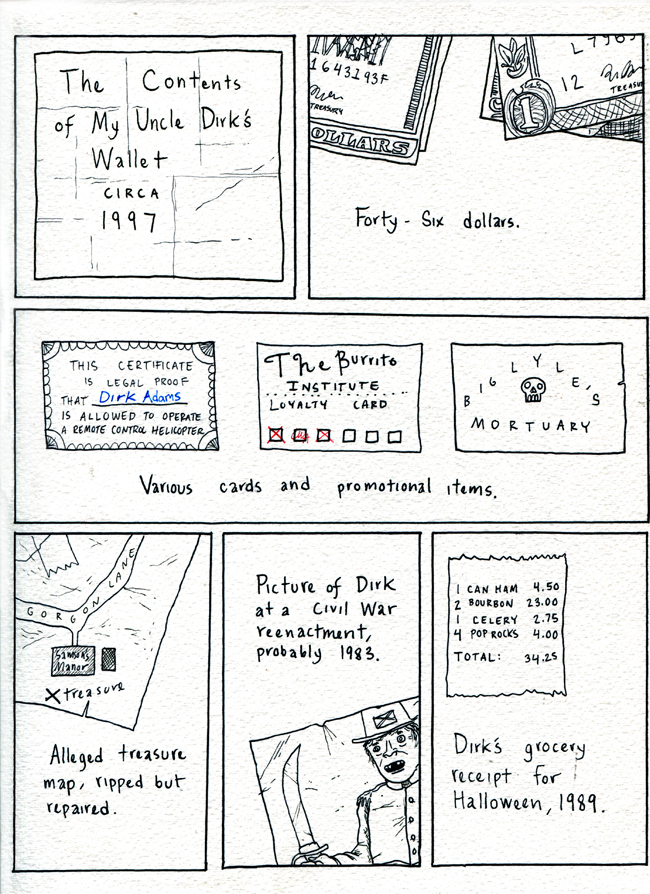 The Contents
of My Uncle Dirk's
Wallet
CIRCA
1997
1643193F
TREASURY
DOLLARS
L7965
12
TREASU
1
Forty-Six dollars.
THIS CERTIFICATE
IS LEGAL PROOF
THAT Dirk Adams
IS ALLOWED TO OPERATE
A REMOTE CONTROL HELICOPTER
The Burrito
INSTITUTE
LOYALTY CARD
BIG LYLE'S
MORTUARY
Various cards and promotional items.
GORGON LANE
Samson's
Manor
X treasure
Alleged treasure
map, ripped but
repaired.
Picture of Dirk
at a Civil War
reenactment,
probably 1983.
1 CAN HAM 4.50
2 BOURBON 23.00
1 CELERY 2.75
4 POP ROCKS 4.00
TOTAL: 34.25
Dirk's grocery
receipt for
Halloween, 1989.